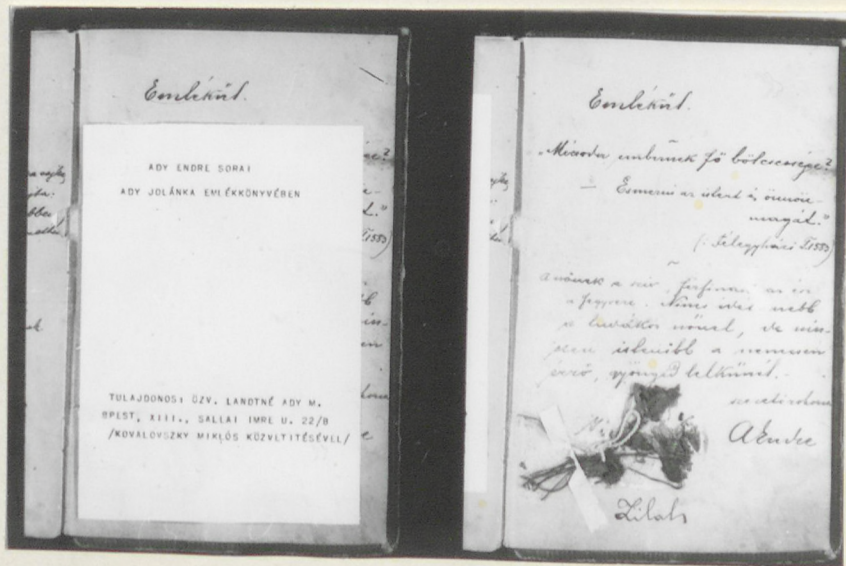 Emlékül.
ADY ENDRE SORAI
ADY JOLÁNKA EMLÉKKÖNYVÉBEN
TULAJDONOS: ÖZV. LANDTNÉ ADY M.
BPEST, XIII., SALLAI IMRE U. 22/B
/KOVALOVSZKY MIKLÓS KÖZVETITÉSÉVEL/
Emlékül.
„Micsoda embernek fő bölcsessége?
— Esmerni az istent és önnön-
magát."
(: Félegyházi T. 1583)
A nőnek a szív, férfinak az ész
a fegyvere. Nincs
a nőnél, de
istenibb a nemesen
érző, gyöngéd lelkűnél.
AEndre
Zilah